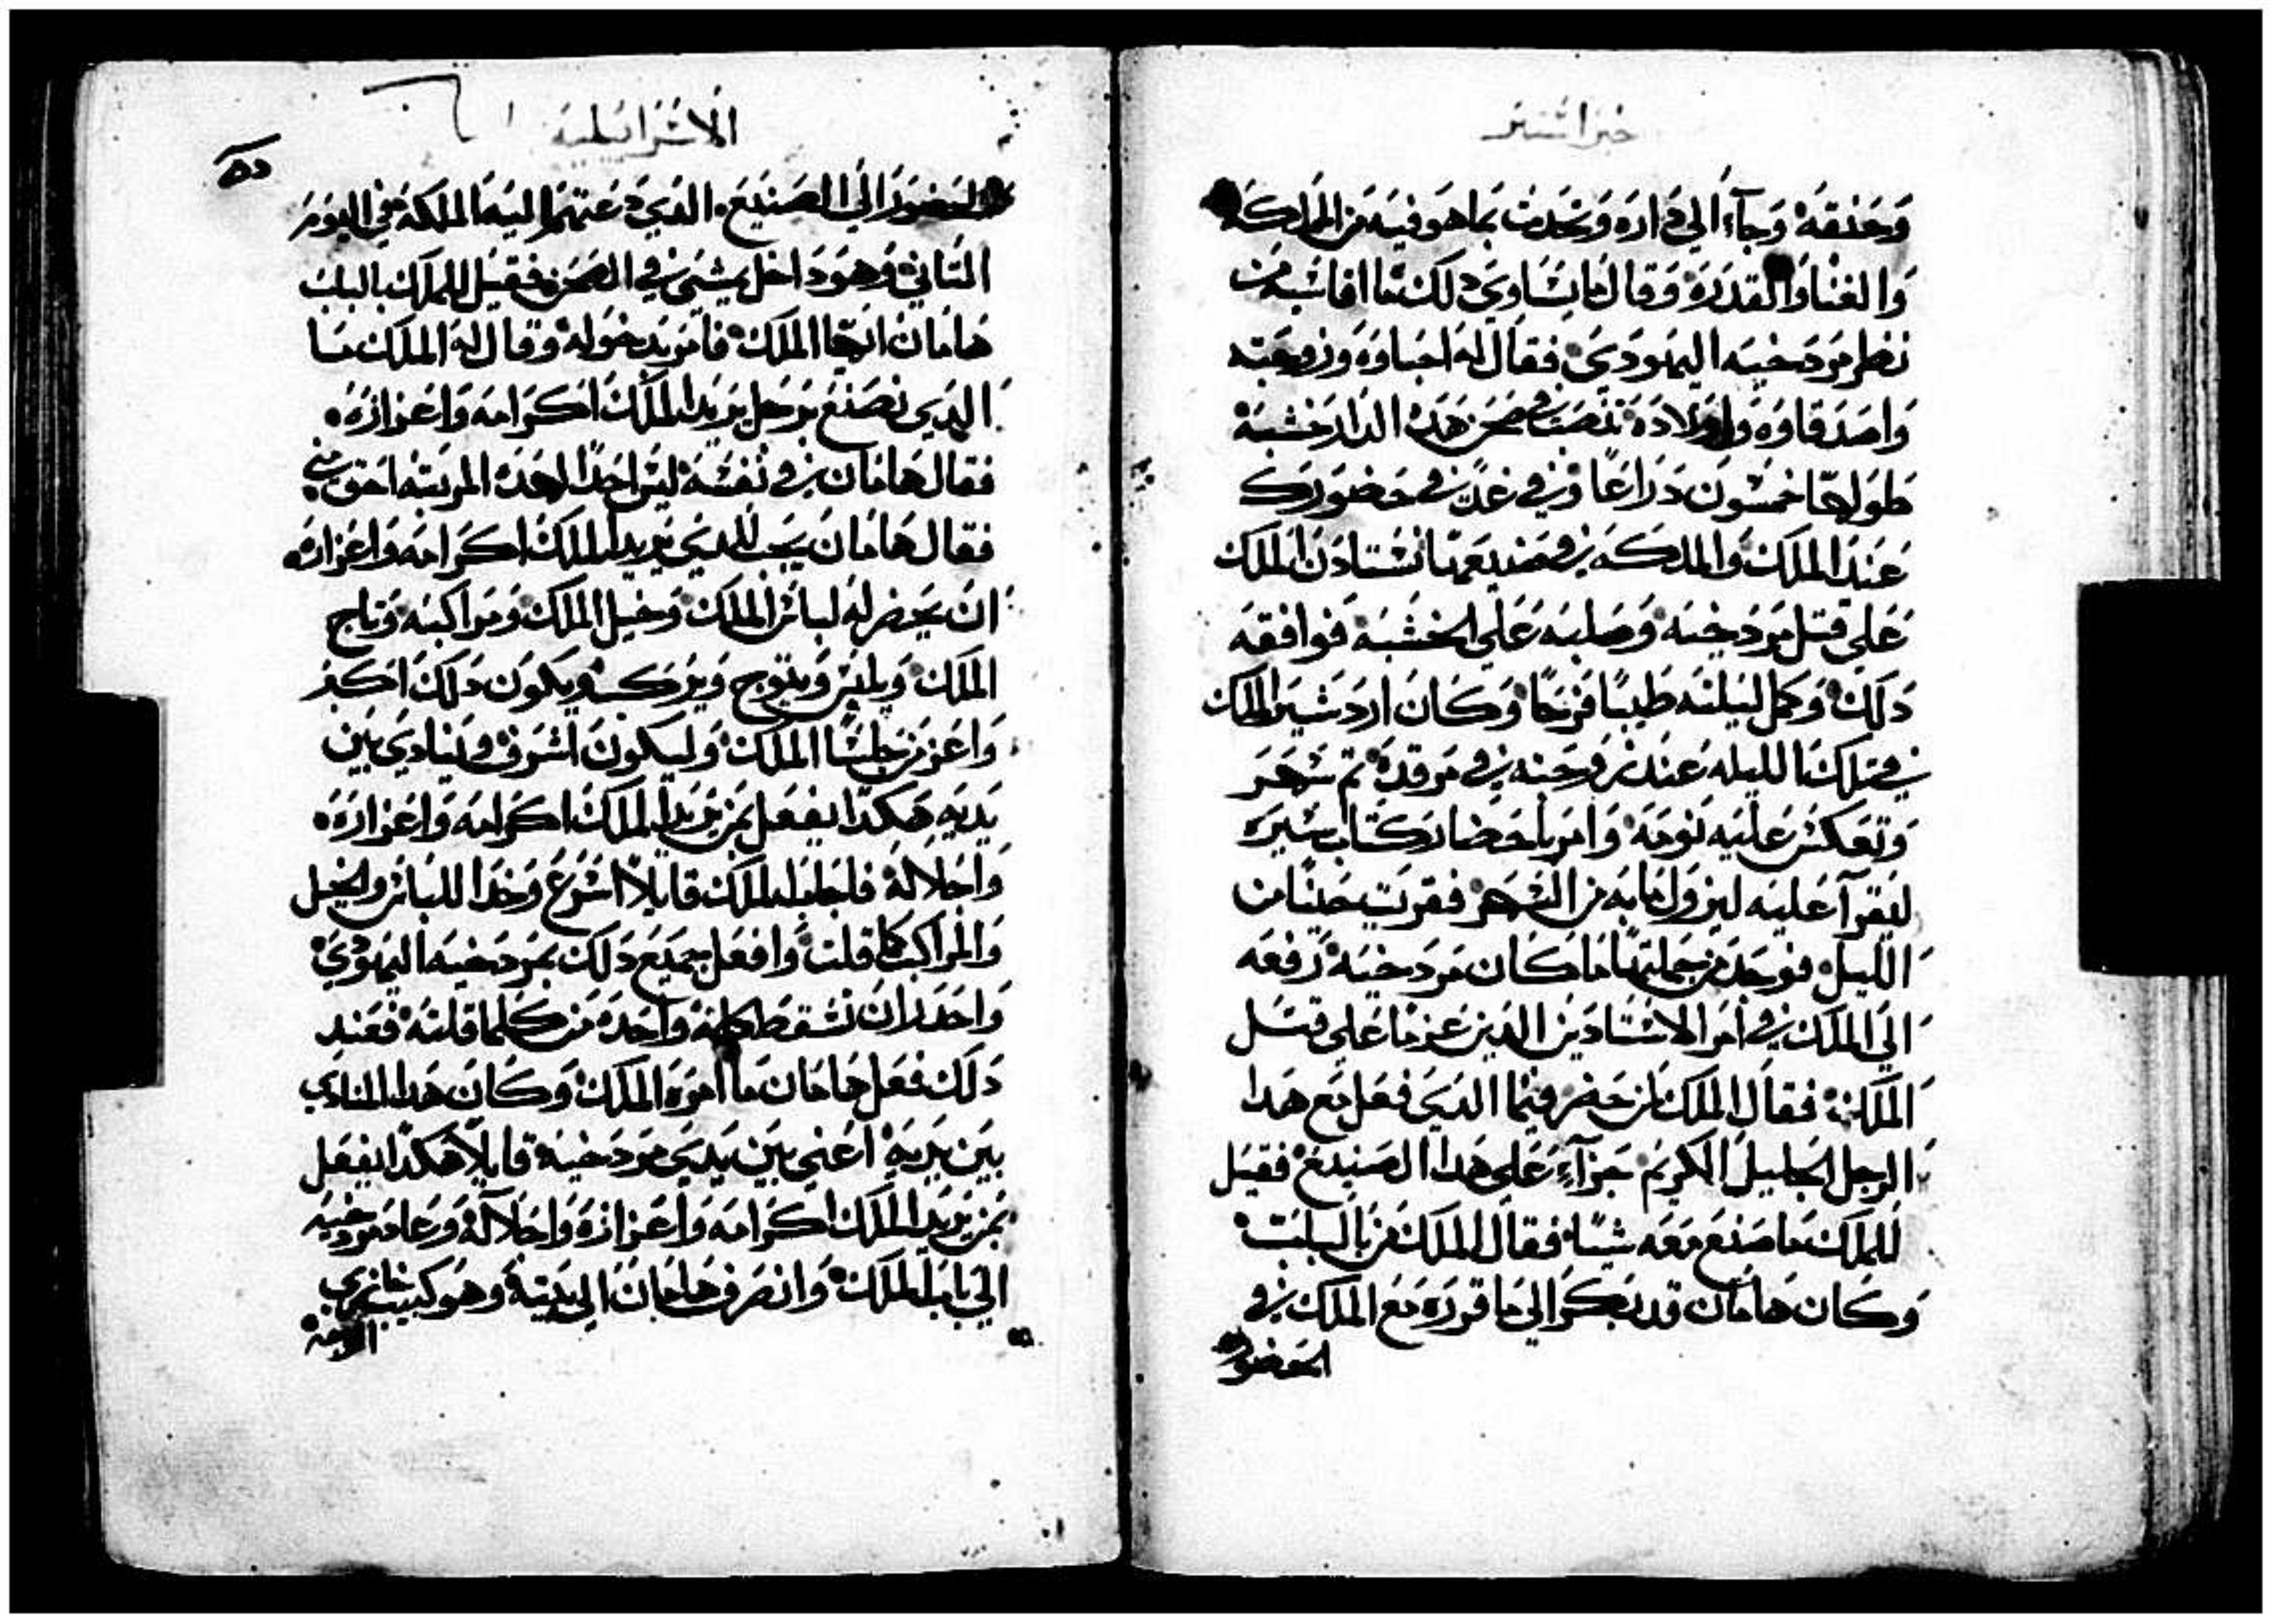 خبر استير
وحنقه وجاء الي داره وتحدث بما هو فيه من المملكه
والغنا والقدره وقال ما يساوي دلك ما اقاسيه من
نظر مردخيه اليهودي فقال له احباوه وزوجته
واصدقاوه واولاده ننصب في صحن هده الدار خشبة
طولها خمسون دراعا وفي غد في حضورك
عند الملك والملكه في صنيعهما نستادن الملك
علي قتل مردخيه وصلبه علي الخشبه فوافقه
دلك وكمل ليلته طيبا فرحا وكان اردشير الملك
في تلك الليله عند زوجته في مرقده ثم سهر
وتعكس عليه نومه وامر باحضار كتاب سيره
ليقرآ عليه ليزول ما به من السهر فقريت حينا من
الليل فوجد من جملتها ما كان مردخيه رفعه
الي الملك في امر الاستادين الدين عزما علي قتل
الملك فقال الملك لمن حضر فيما الدي فعل مع هدا
الرجل الجليل الكريم جزآء علي هدا الصنيع فقيل
للملك ما صنع معه شيا فقال الملك من بالباب
وكان هامان قد بكر الي ما قرره مع الملك في
الحضور
الاسراييلية
٥٥
الحضور الي الصنيع الدي دعتهما اليه الملكه في اليوم
التاني وهو داخل يمشي في الصحن فقيل للملك بالباب
هامان ايها الملك فامر بدخوله وقال له الملك ما
الدي نصنع برجل يريد الملك اكرامه واعزازه
فقال هامان في نفسه ليس احدا لهده المرتبه احق مني
فقال هامان يجب للدي يريد الملك اكرامه واعزازه
ان يحضر له لباس الملك وخيل الملك ومراكبه وتاج
الملك ويلبس ويتوج ويركب ويكون دلك اكبر
واعز من جلسا الملك وليكون اشرف وينادي بين
يديه هكدا يفعل بمن يريد الملك اكرامه واعزازه
واجلاله فاجابه الملك قايلا اسرع وخد اللباس والخيل
والمراكب كما قلت وافعل جميع دلك بمردخيه اليهودي
واحدر ان تسقط كلمة واحده من كلما قلته فعند
دلك فعل هامان ما امره الملك وكان هدا المنادي
بين يديه اعني بين يدي مردخيه قايلا هكدا يفعل
بمن يريد الملك اكرامه واعزازه واجلاله وعاد مردخيه
الي باب الملك وانصرف هامان الي بيته وهو كييب خازي